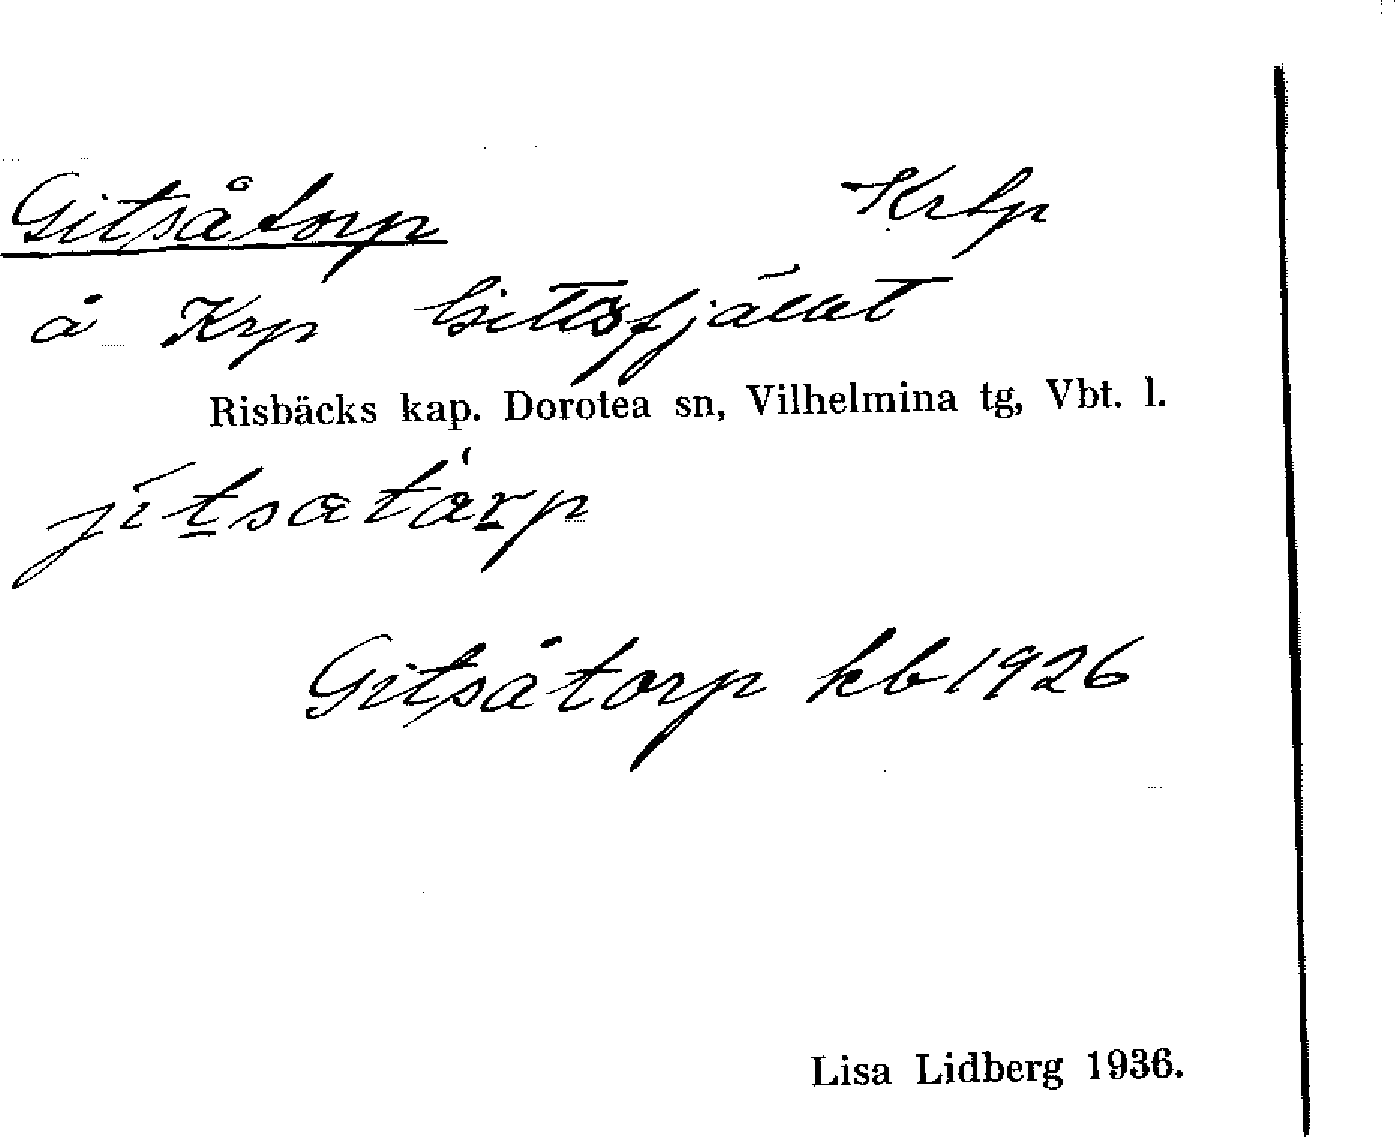 Gitsåtorp Krtp
å Krp Gitsfjället
Risbäcks kap. Dorotea sn, Vilhelmina tg, Vbt. l.
jitsatårp
Gitsåtorp kb 1926
Lisa Lidberg 1936.